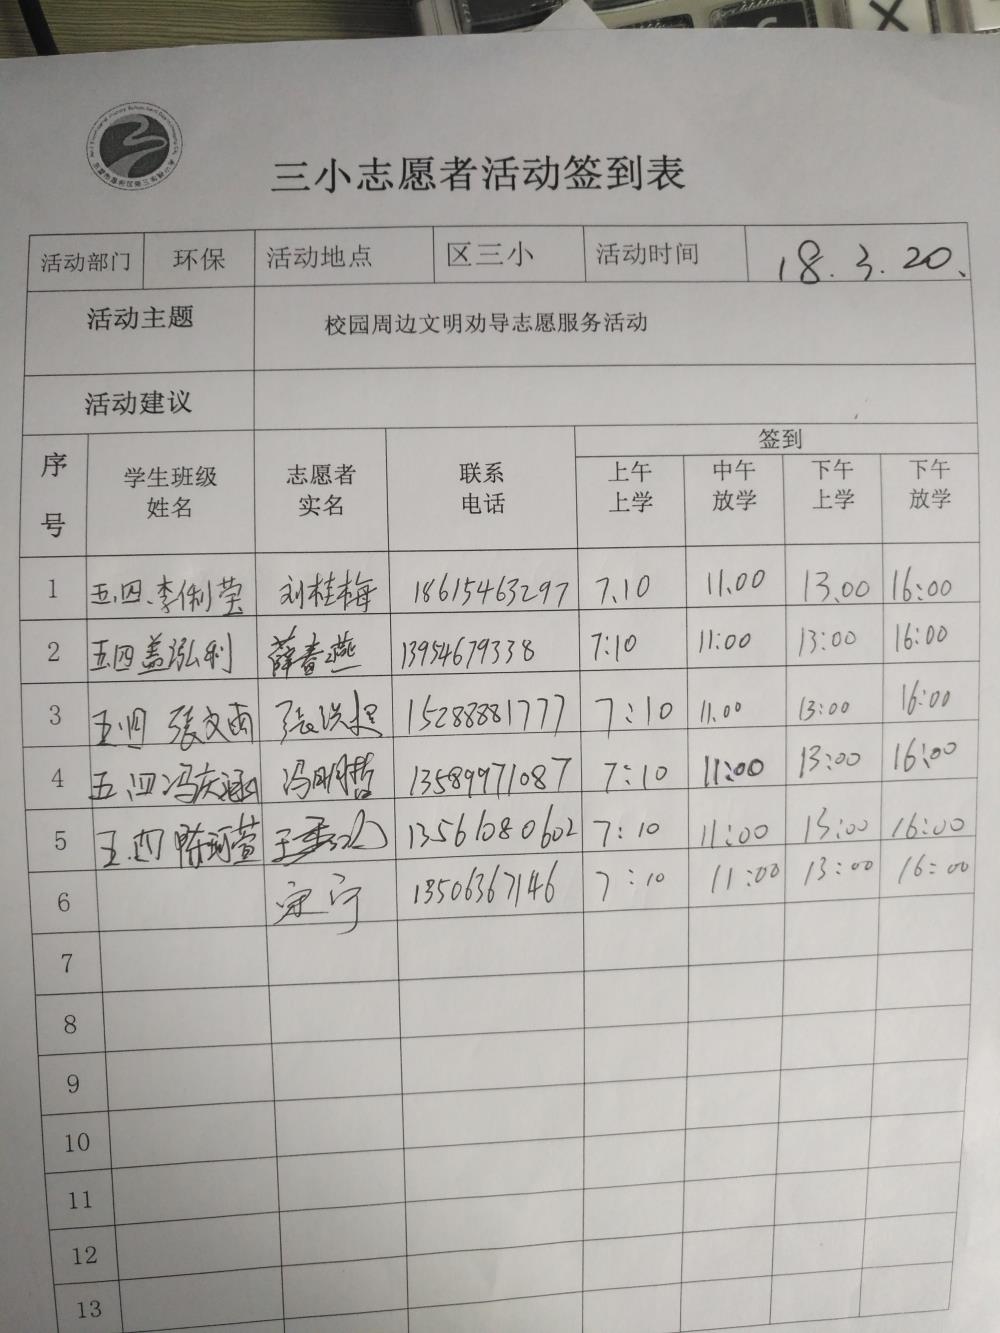 三小志愿者活动签到表
活动部门 环保 活动地点 区三小 活动时间 18.3.20、
活动主题 校园周边文明劝导志愿服务活动
活动建议
序号 学生班级姓名 志愿者实名 联系电话 签到
上午上学 中午放学 下午上学 下午放学
1 五.四.李俐莹 刘桂梅 18615463297 7.10 11.00 13.00 16:00
2 五四盖泓利 薛春燕 13954679338 7:10 11:00 13:00 16:00
3 五.四 張文雨 張洪 15288881777 7:10 11.00 13:00 16:00
4 五.四冯庆涵 冯明哲 13589971087 7:10 11:00 13:00 16:00
5 五.四 陈珂萱 王 13561080602 7:10 11:00 13:00 16:00
6 宋宁 13506367146 7:10 11:00 13:00 16:00
7
8
9
10
11
12
13